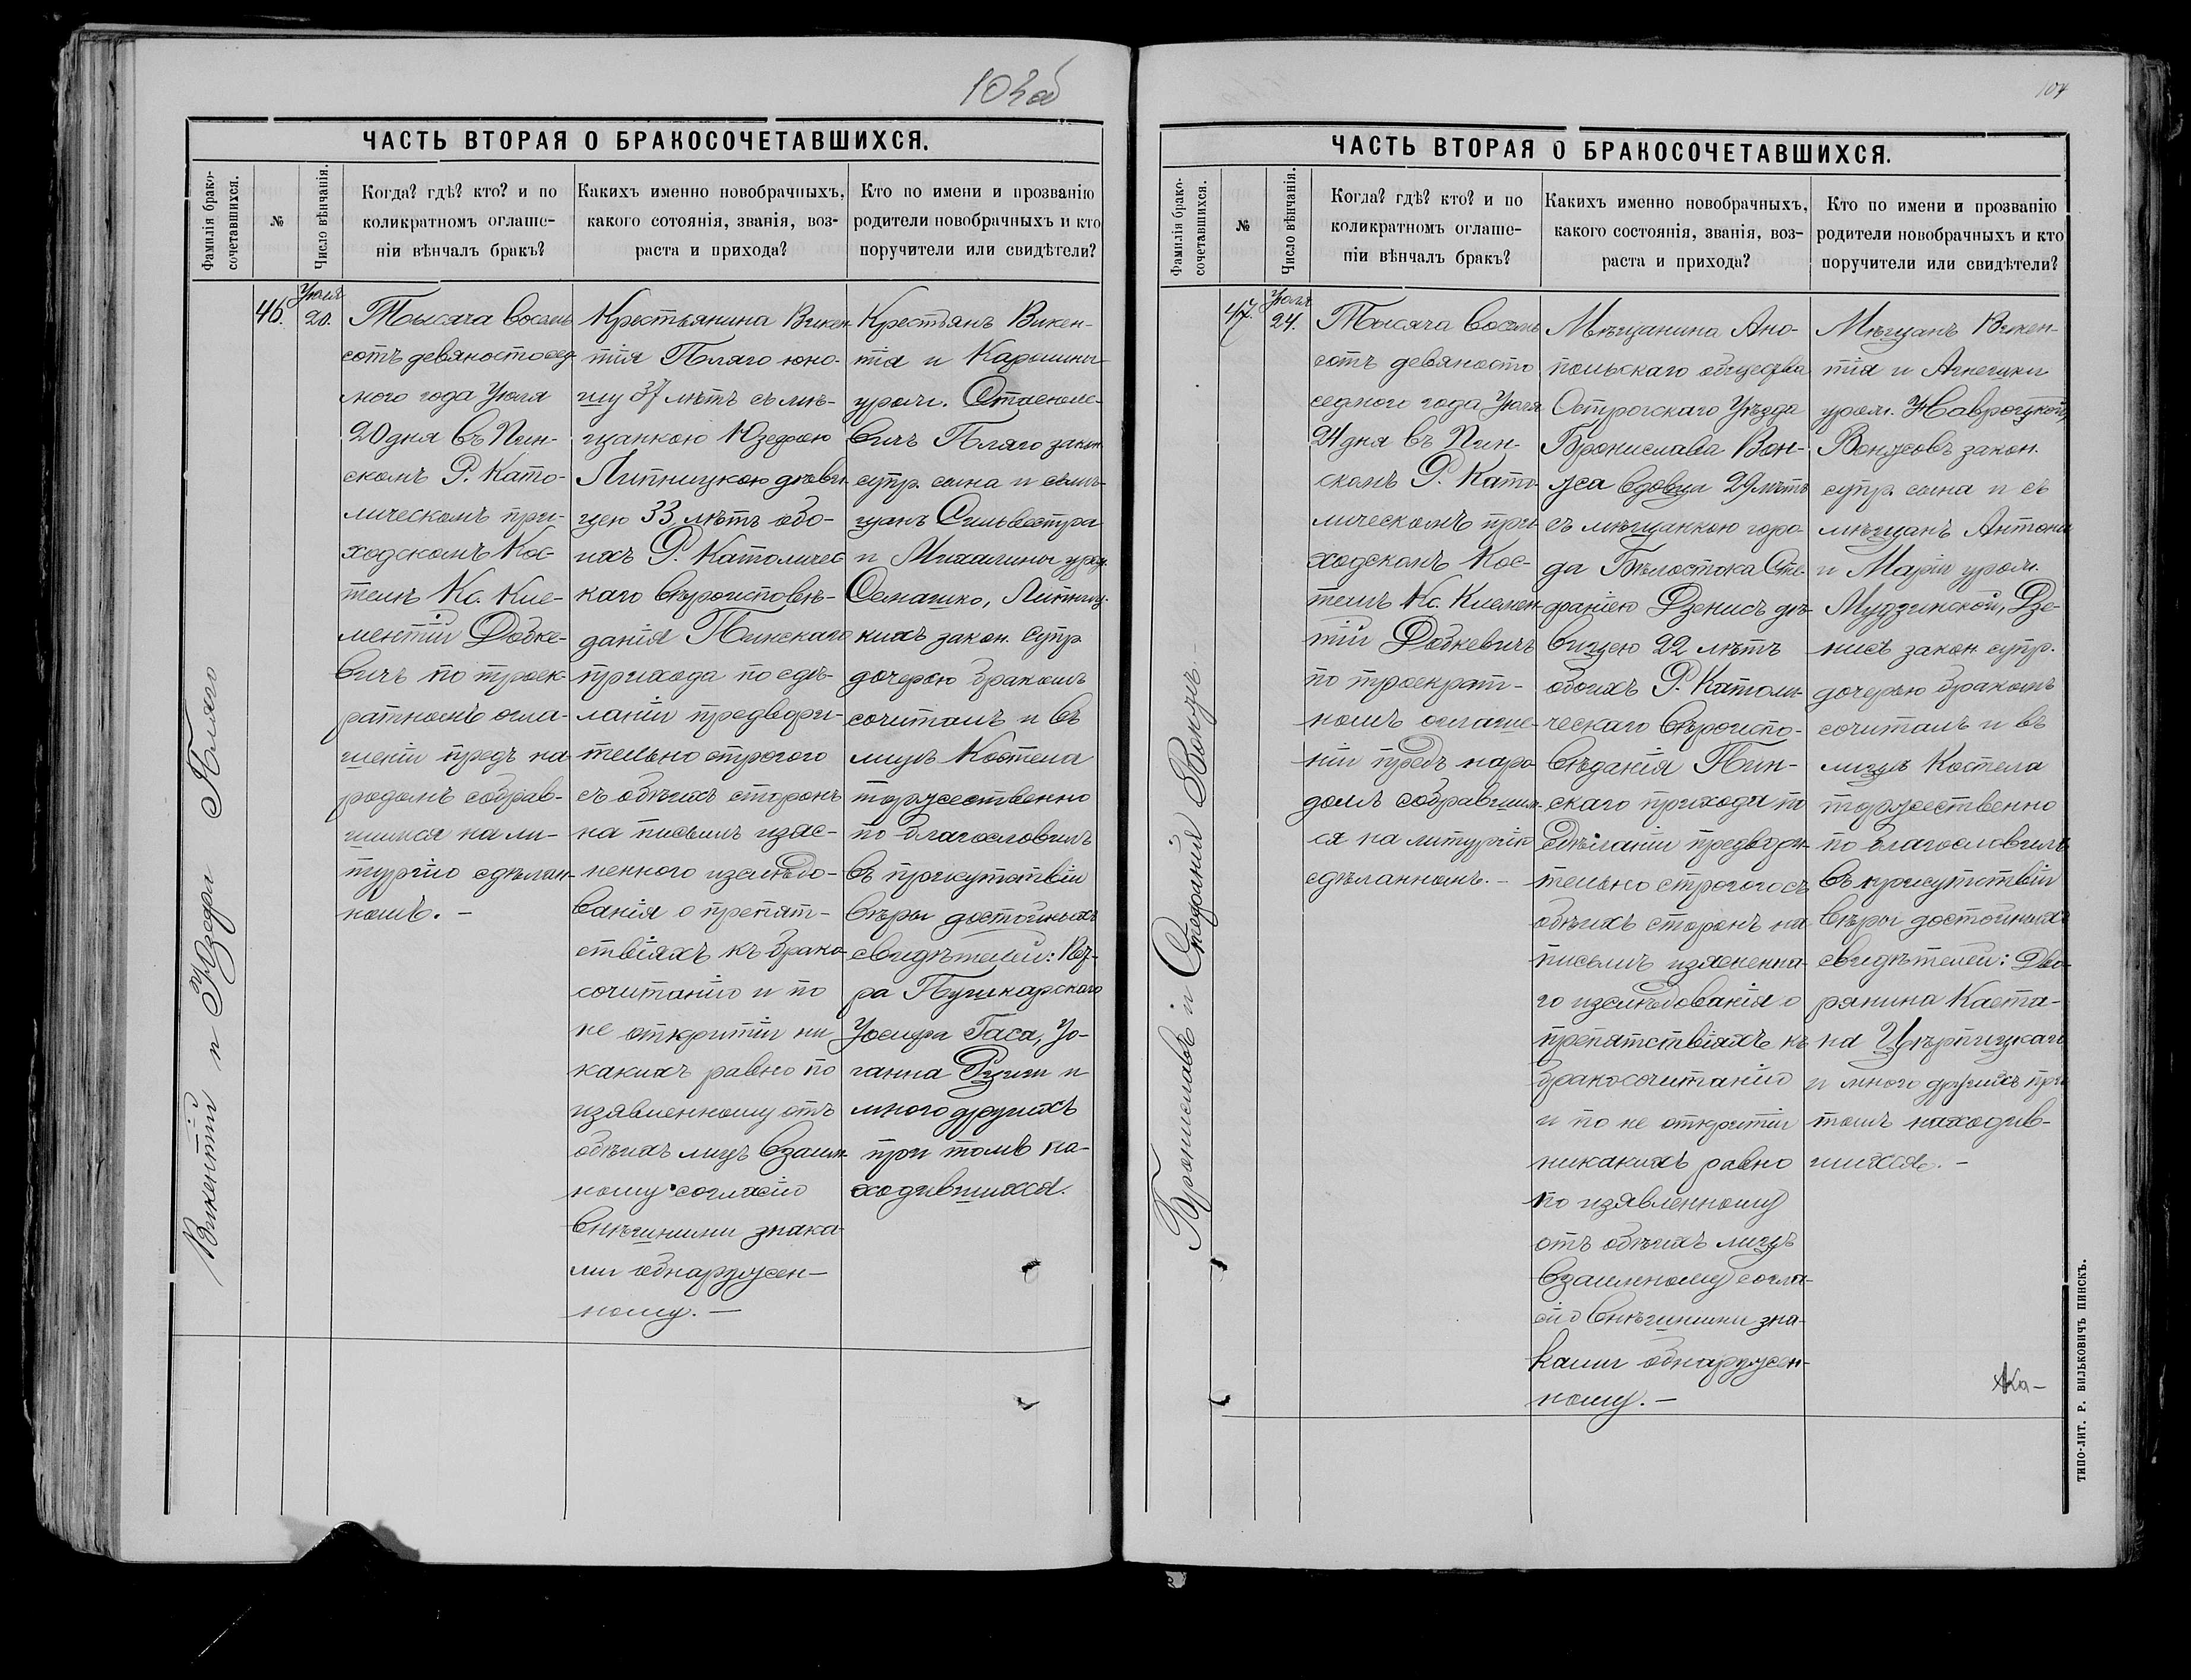 103об
ЧАСТЬ ВТОРАЯ О БРАКОСОЧЕТАВШИХСЯ.
Фамилія брако-
сочетавшихся.
№
Число вѣнчанія.
Когда? гдѣ? кто? и по
коликратномъ оглаше-
ніи вѣнчалъ бракъ?
Какихъ именно новобрачныхъ,
какого сотоянія, званія, воз-
раста и прихода?
Кто по имени и прозванію
родители новобрачныхъ и кто
поручители или свидѣтели?
Викентій и Юзефа Пляго
46.
Іюля
20.
Тысяча восемь
сотъ девяносто сед-
мого года Іюля
20 дня въ Пин-
скомъ Р. Като-
лическомъ при-
ходскомъ Кос-
телѣ Кс. Кле-
ментій Довке-
вичъ по троек-
ратномъ огла-
шеніи предъ на
родомъ собрав-
шимся на ли-
тургію сдѣлан-
номъ. -
Крестьянина Викен-
тія Пляго юно-
шу 37 лѣтъ съ мѣ-
щанкою Юзефою
Липницкою дѣви-
цею 33 лѣтъ обо-
ихъ Р. Католичес
каго вѣроисповѣ-
данія Пинскаго
прихода по сдѣ-
ланіи предвари-
тельно строгого
съ обѣихъ сторонъ
на письмѣ изяс-
ненного изслѣдо-
ванія о препят-
ствіяхъ къ брако-
сочитанію и по
не открытіи ни
какихъ равно по
изявленному отъ
обѣихъ лицъ взаим-
ному согласію
внѣшними знака-
ми обнаружен-
ному. -
Крестьянъ Викен-
тія и Каролины
урож. Стаскеле-
вичъ Пляго закон.
супр. сына и съ мѣ-
щанъ Сильвестра
и Михалины урож.
Семашко, Липниц-
кихъ закон. супр.
дочерою бракомъ
сочиталъ и въ
лицѣ Костела
торжественно
по благословилъ
въ присутствіи
вѣры достойныхъ
свидѣтелей: Каз-
ра Пушкарского
Іосифа Гаса, Іо-
ганна и
много другихъ
при томъ на-
ходившихся.
104
ЧАСТЬ ВТОРАЯ О БРАКОСОЧЕТАВШИХСЯ.
Фамилія брако-
сочетавшихся.
№
Число вѣнчанія.
Когда? гдѣ? кто? и по
коликратномъ оглаше-
ніи вѣнчалъ бракъ?
Какихъ именно новобрачныхъ,
какого состоянія, званія, воз-
раста и прихода?
Кто по имени и прозванію
родители новобрачныхъ и кто
поручители или свидѣтели?
Брониславъ и Стефанія Вонжъ. -
47.
Іюля
24.
Тысяча восемь
сотъ девяносто
седмого года Іюля
24 дня въ Пин-
скомъ Р. Като-
лическомъ при-
ходскомъ Кос-
телѣ Кс. Клемен-
тій Довкевичъ
по троекрат-
номъ оглаше-
ніи предъ наро-
домъ собравшим-
ся на литургію
сдѣланномъ. -
Мѣщанина Ано-
польскаго общества
Острогскаго Уѣзда
Бронислава Вон-
жа вдовца 29 лѣтъ
съ мѣщанкою горо-
да Бѣлостока Сте-
фаніею Дзенисъ дѣ-
вицею 22 лѣтъ
обоихъ Р. Католи-
ческаго вѣроиспо-
вѣданія Пин-
скаго прихода по
сдѣланіи предвари-
тельно строгого съ
обѣихъ сторонъ на
письмѣ изясненна-
го изслѣдованія о
препятствіяхъ къ
бракосочитанію
и по не открытіи
никакихъ равно
по изявленному
отъ обѣихъ лицъ
взаимному согла-
сію внѣшними зна-
ками обнаружен-
ному. -
Мѣщанъ Викен-
тія и Агнешки
урож. Навроцкой,
Вонжовъ закон.
супр. сына и съ
мѣщанъ Антона
и Маріи урож.
Мудзинской, Дзе-
нисъ закон. супр.
дочерью бракомъ
сочиталъ и въ
лицѣ Костела
торжественно
по благословилъ
въ присутствіи
вѣры достойныхъ
свидѣтелей: Дво-
рянина Каета-
на Цѣрпицкаго
и много другихъ при
томъ находив-
шихся. -
Ка-
ТИПО-ЛИТ. Р. ВИЛЬКОВИЧЪ ПИНСКЪ.